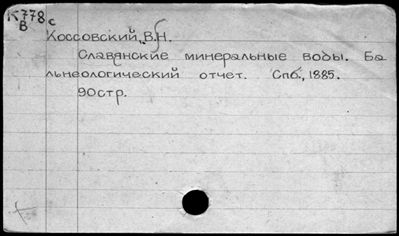 К778с
В
Коссовский, В.Н.
Славянские минеральные воды. Ба
льнеологический отчет. Спб., 1885.
90стр.